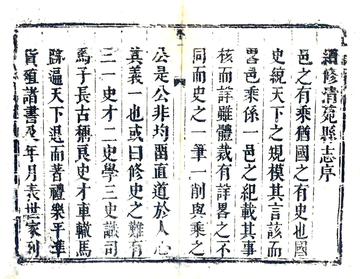 續修清苑縣志序
邑之有乘猶國之有史也國
史統天下之規模其言該而
畧邑乘係一邑之紀載其事
核而詳雖體裁有詳畧之不
同而史之一筆一削與乘之
公是公非均畱直道於人心
其義一也或曰修史之難有
三一史才二史學三史識司
馬子長古稱良史才車轍馬
跡遍天下退而著禮樂平準
貨殖諸書及年月表世家列